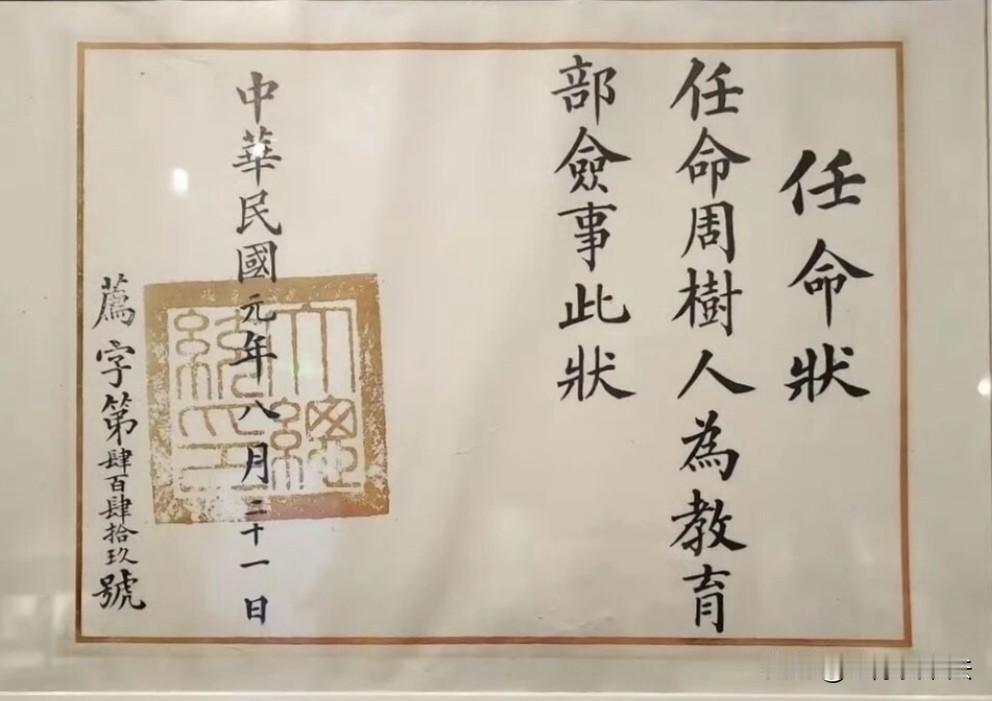 任命狀
任命周樹人為教育
部僉事此狀
中華民國元年八月二十一日
薦字第肆百肆拾玖號
大總
統印